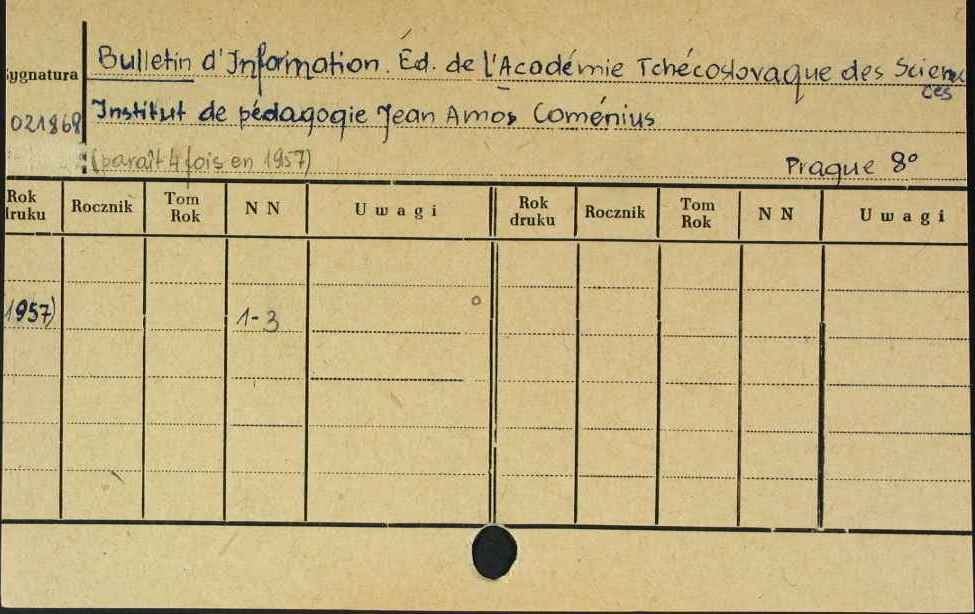 Bulletin d'Information. Éd. de l'Académie Tchécoslovaque des Scien
ces
ygnatura
Institut de pédagogie Jean Amos Coménius
021868
(paraît 4 fois en 1957)
Prague 8°
Rok druku Rocznik Tom Rok N N Uwagi Rok druku Rocznik Tom Rok N N Uwagi
1957) 1-3